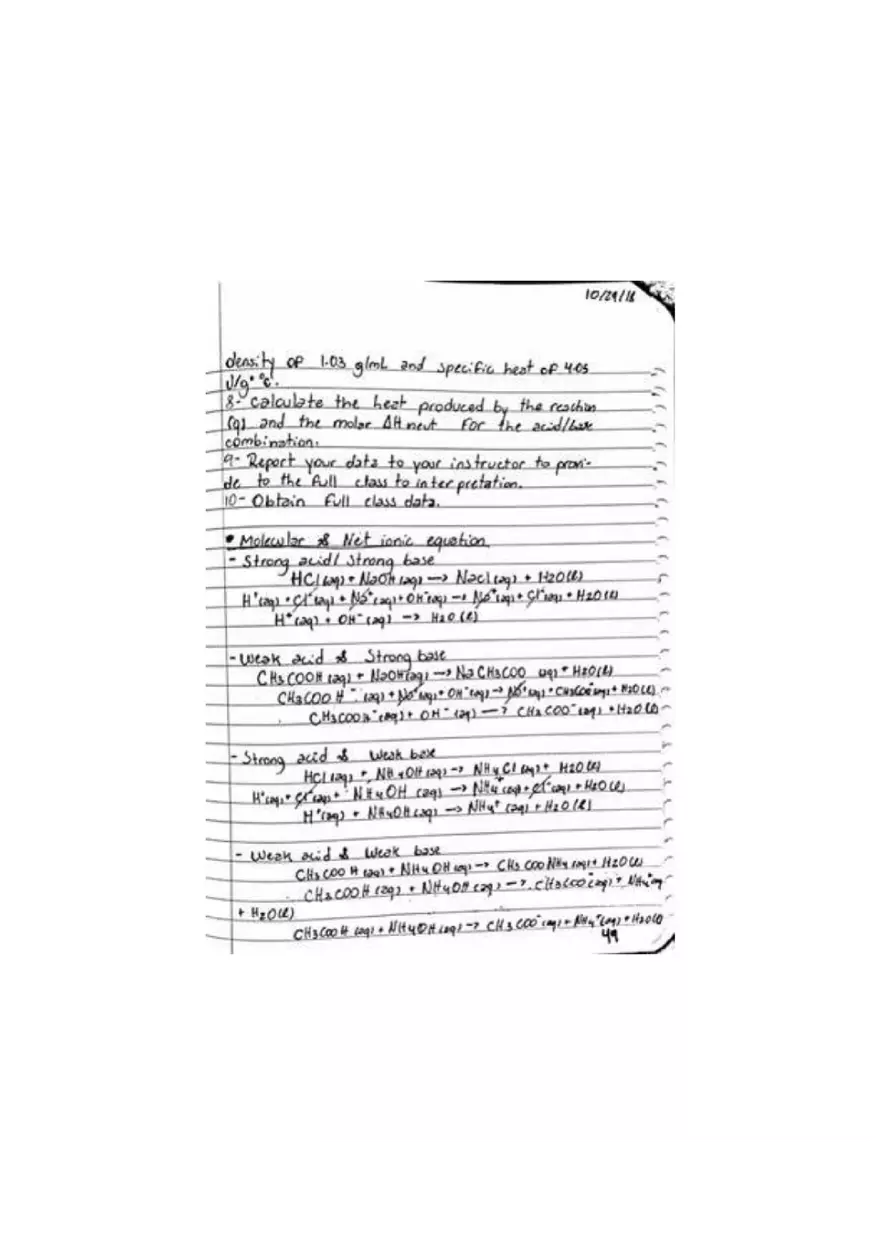 10/29/18
density of 1.03 g/mL and specific heat of 4.05
J/g·°c.
8- Calculate the heat produced by the reaction
(q) and the molar ΔH neut for the acid/base
combination.
9- Report your data to your instructor to provi-
de to the full class to interpretation.
10- Obtain full class data.
• Molecular & Net ionic equation
- Strong acid/ Strong base
HCl (aq) + NaOH (aq) → Nacl (aq) + H2O (l)
H⁺(aq) + Cl⁻(aq) + Na⁺(aq) + OH⁻(aq) → Na⁺(aq) + Cl⁻(aq) + H2O (l)
H⁺(aq) + OH⁻(aq) → H2O (l)
- Weak acid & Strong base
CH3COOH (aq) + NaOH(aq) → NaCH3COO (aq) + H2O(l)
CH3COOH⁻ (aq) + Na⁺(aq) + OH⁻(aq) → Na⁺(aq) + CH3COO⁻(aq) + H2O (l)
CH3COOH⁻(aq) + OH⁻ (aq) → CH3COO⁻(aq) + H2O (l)
- Strong acid & Weak base
HCl (aq) + NH4OH (aq) → NH4Cl (aq) + H2O (l)
H⁺(aq) + Cl⁻(aq) + NH4OH (aq) → NH4⁺ (aq) + Cl⁻(aq) + H2O (l)
H⁺(aq) + NH4OH (aq) → NH4⁺ (aq) + H2O (l)
- Weak acid & Weak base
CH3COOH (aq) + NH4OH (aq) → CH3COONH4 (aq) + H2O (l)
CH3COOH (aq) + NH4OH (aq) → CH3COO⁻(aq) + NH4⁺(aq)
+ H2O(l)
CH3COOH (aq) + NH4OH (aq) → CH3COO⁻(aq) + NH4⁺(aq) + H2O(l)
49